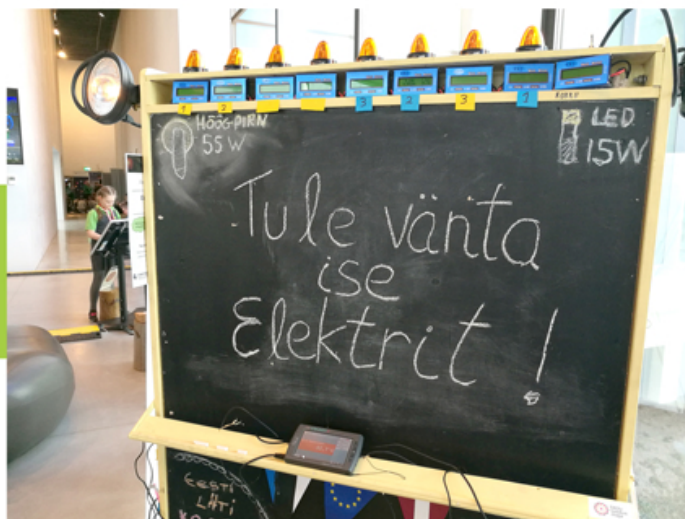 HÕÕG-PIRN
55W
LED
15W
Tule vänta
ise
Elektrit!
EESTI
LÄTI